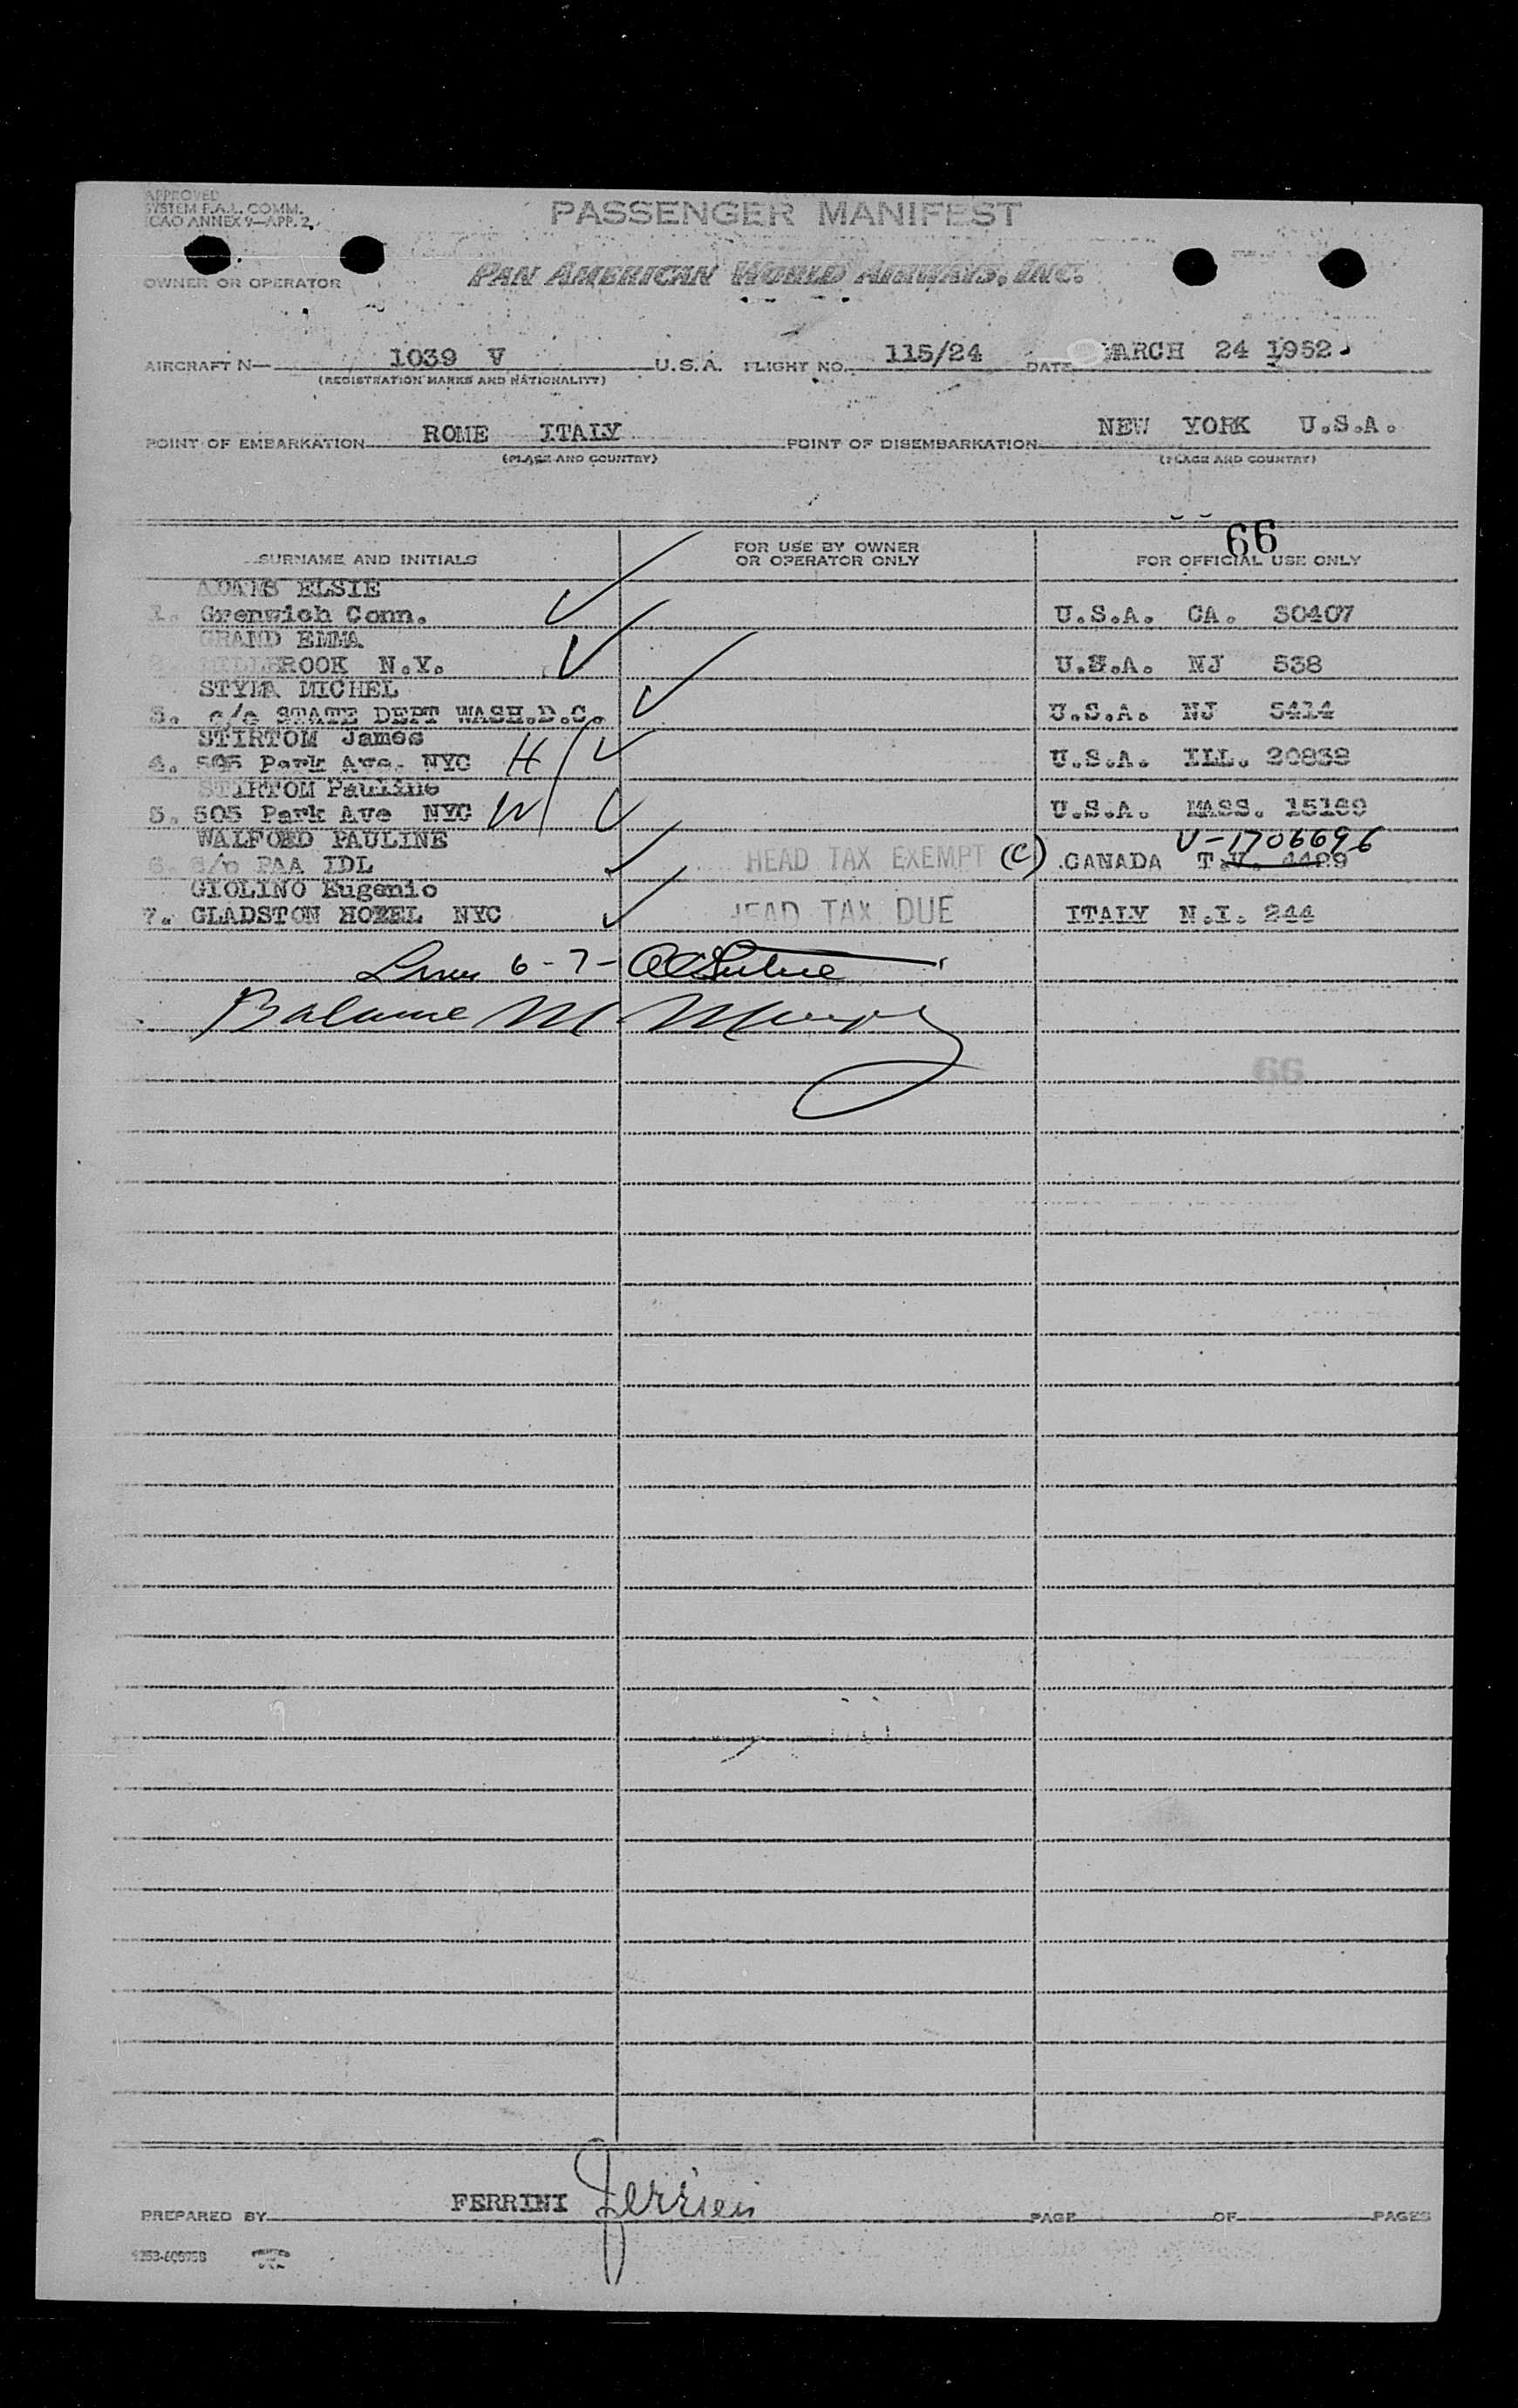 APPROVED
SYSTEM F.A.L. COMM.
ICAO ANNEX 9—APP. 2
PASSENGER MANIFEST
OWNER OR OPERATOR
PAN AMERICAN WORLD AIRWAYS, INC.
AIRCRAFT N— 1039 V U.S.A. FLIGHT NO. 115/24 DATE MARCH 24 1952
(REGISTRATION MARKS AND NATIONALITY)
POINT OF EMBARKATION ROME ITALY POINT OF DISEMBARKATION NEW YORK U.S.A.
(PLACE AND COUNTRY) (PLACE AND COUNTRY)
66
SURNAME AND INITIALS FOR USE BY OWNER OR OPERATOR ONLY FOR OFFICIAL USE ONLY
ELSIE
1. Grenwich Conn. U.S.A. CA. 30407
GRAND EMMA
2. MILLBROOK N.Y. U.S.A. NJ 538
STYMA MICHEL
3. c/o STATE DEPT WASH.D.C. U.S.A. NJ 5414
STIRTOM James
4. 505 Park Ave. NYC H U.S.A. ILL. 20838
STIRTOM Pauline
5. 505 Park Ave NYC W U.S.A. MASS. 15169
WALFORD PAULINE V-1706696
6. c/o PAA IDL HEAD TAX EXEMPT (C) CANADA T.V. 4499
GIOLINO Eugenio
7. GLADSTON HOTEL NYC HEAD TAX DUE ITALY N.I. 244
6-7-
Balance M
66
PREPARED BY FERRINI Ferrini PAGE OF PAGES
PRINTED